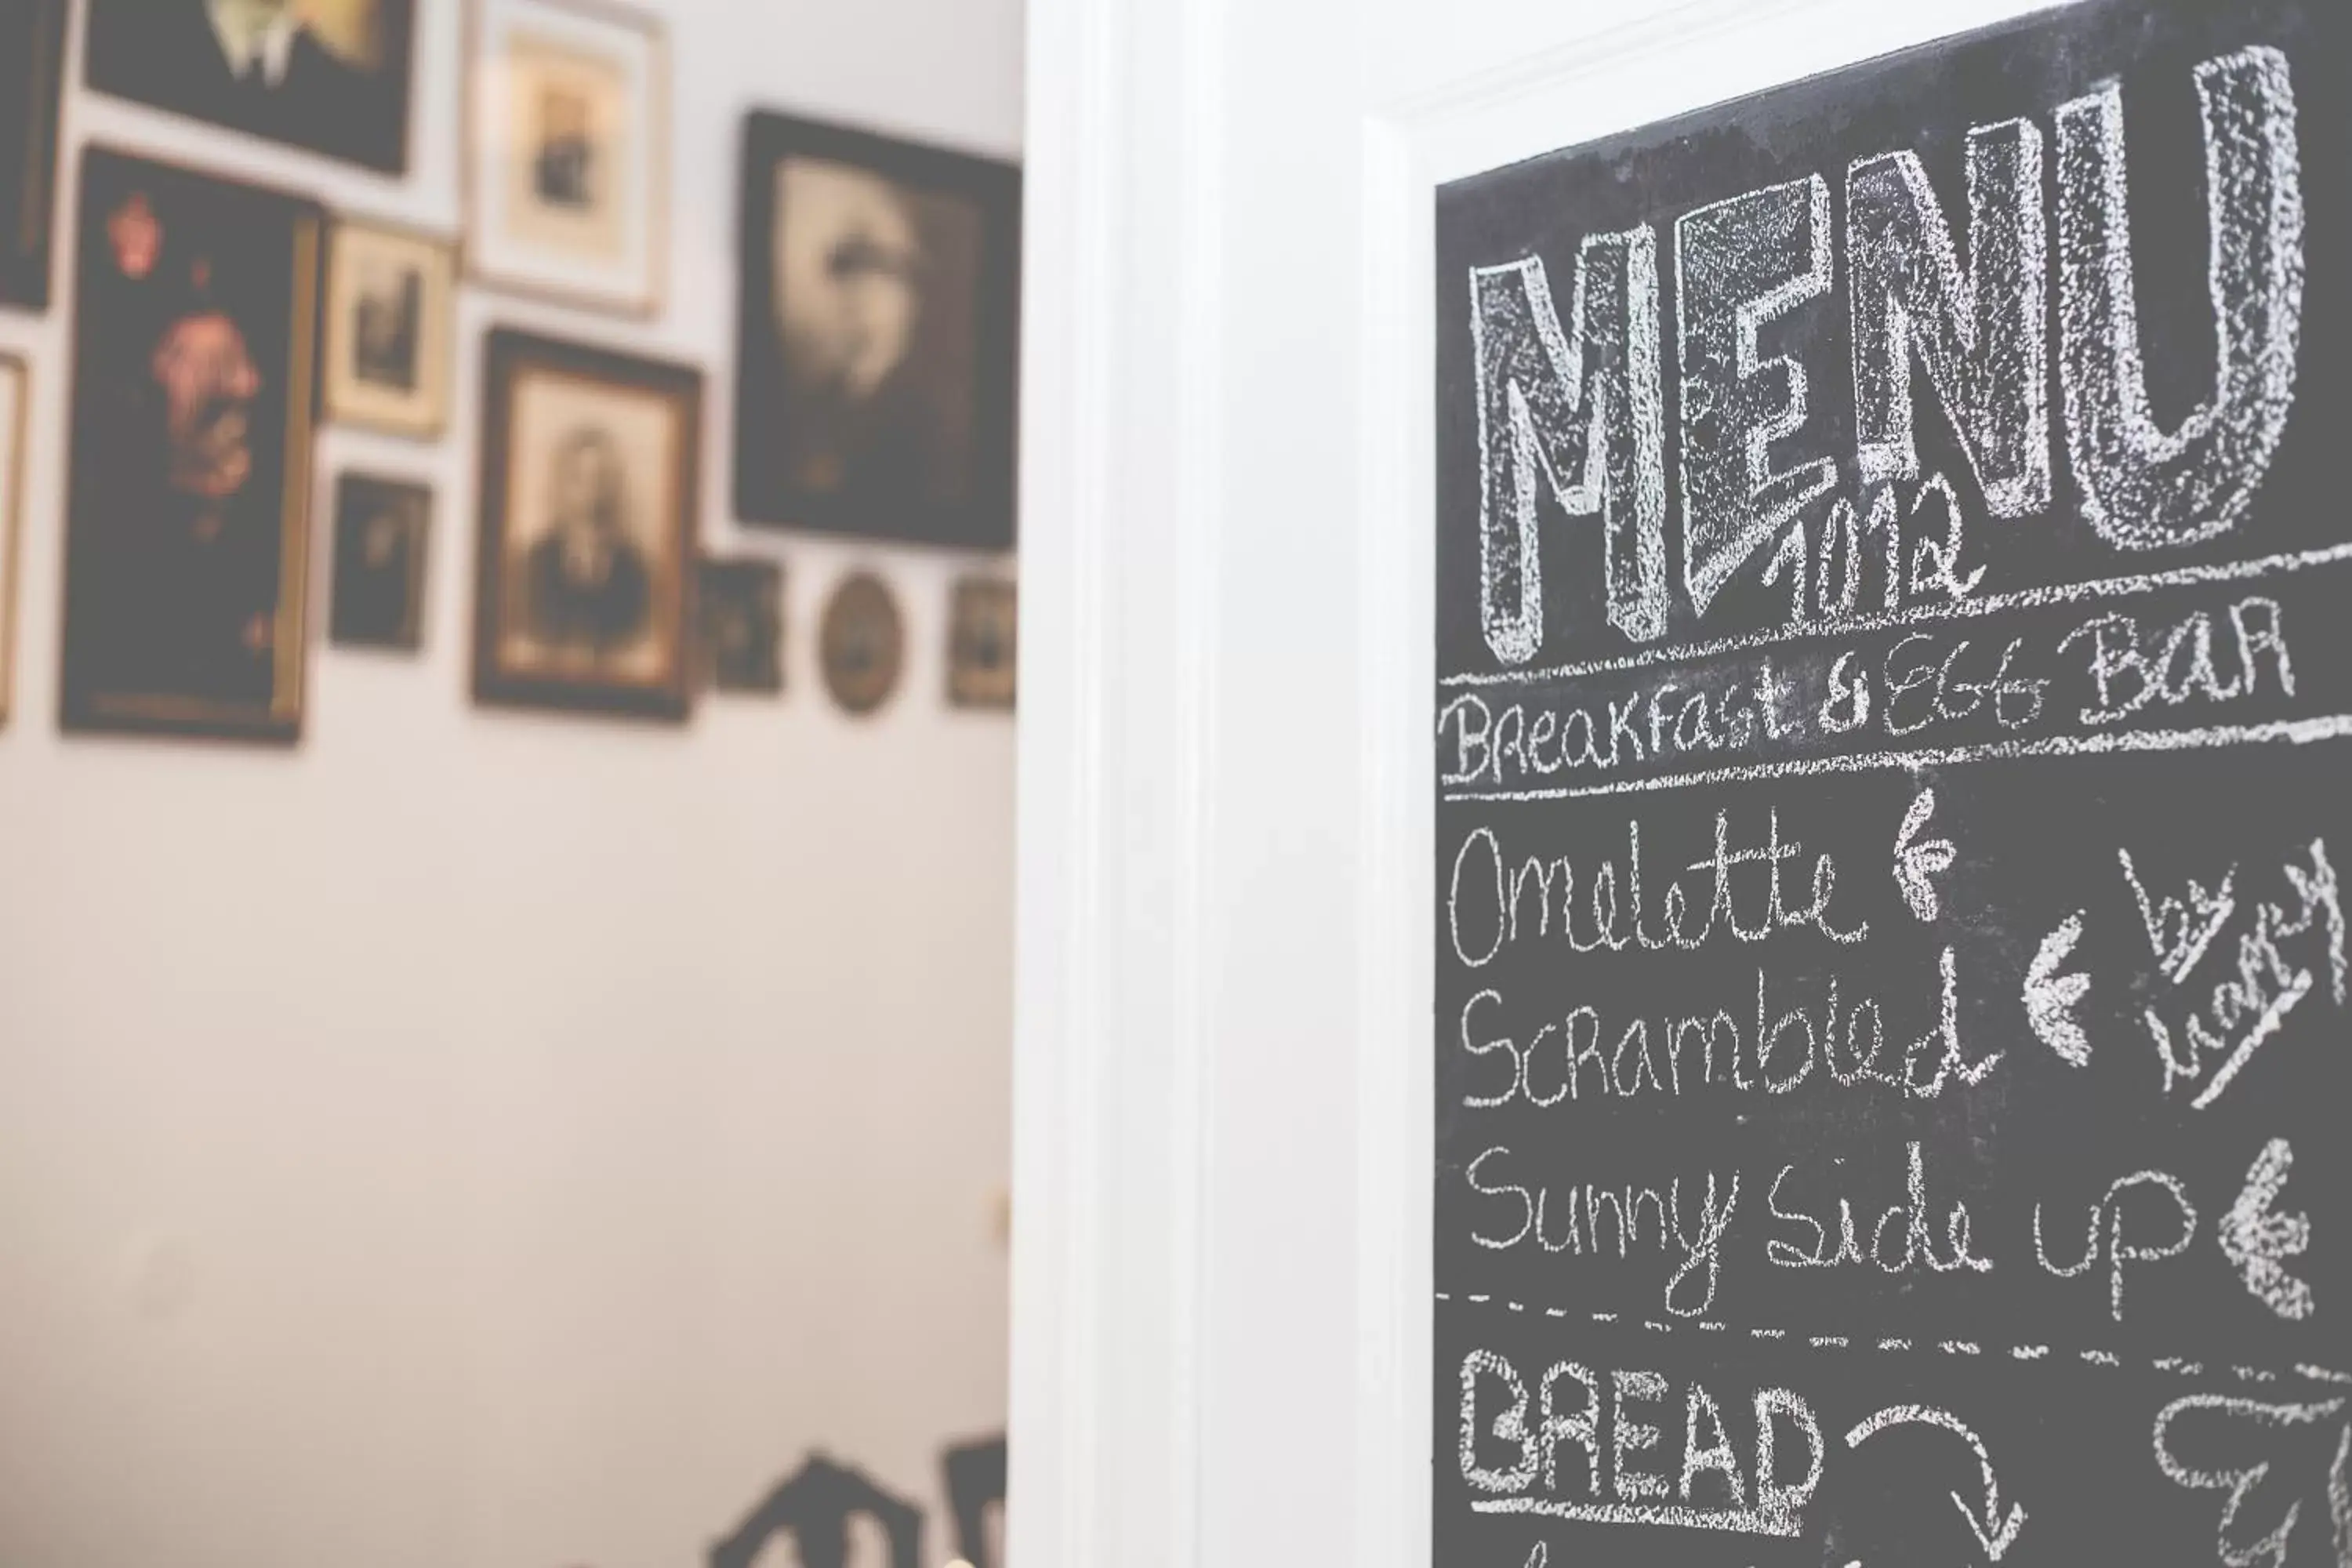 MENU
1012
Breakfast & EGG BAR
Omelette
Scrambled
by
Sunny Side up
BREAD